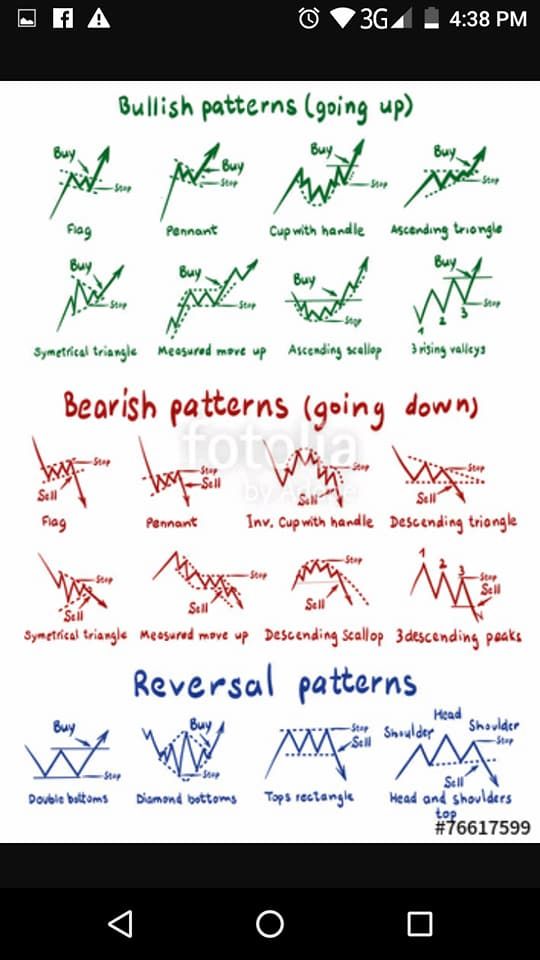 3G 4:38 PM
Bullish patterns (going up)
Buy Stop
Buy Stop
Buy Stop
Buy Stop
Flag Pennant Cup with handle Ascending triangle
Buy Stop
Buy Stop
Buy Stop
Buy Stop 1 2 3
Symetrical triangle Measured move up Ascending scallop 3 rising valleys
Bearish patterns (going down)
fotolia
by Adobe
Stop Sell
Stop Sell
Stop Sell
Stop Sell
Flag Pennant Inv. Cup with handle Descending triangle
Stop Sell
Stop Sell
Stop Sell
1 2 3 Stop Sell
Symetrical triangle Measured move up Descending scallop 3 descending peaks
Reversal patterns
Buy Stop
Buy Stop
Stop Sell
Shoulder Head Shoulder Stop Sell
Double bottoms Diamond bottoms Tops rectangle Head and shoulders
top
#76617599